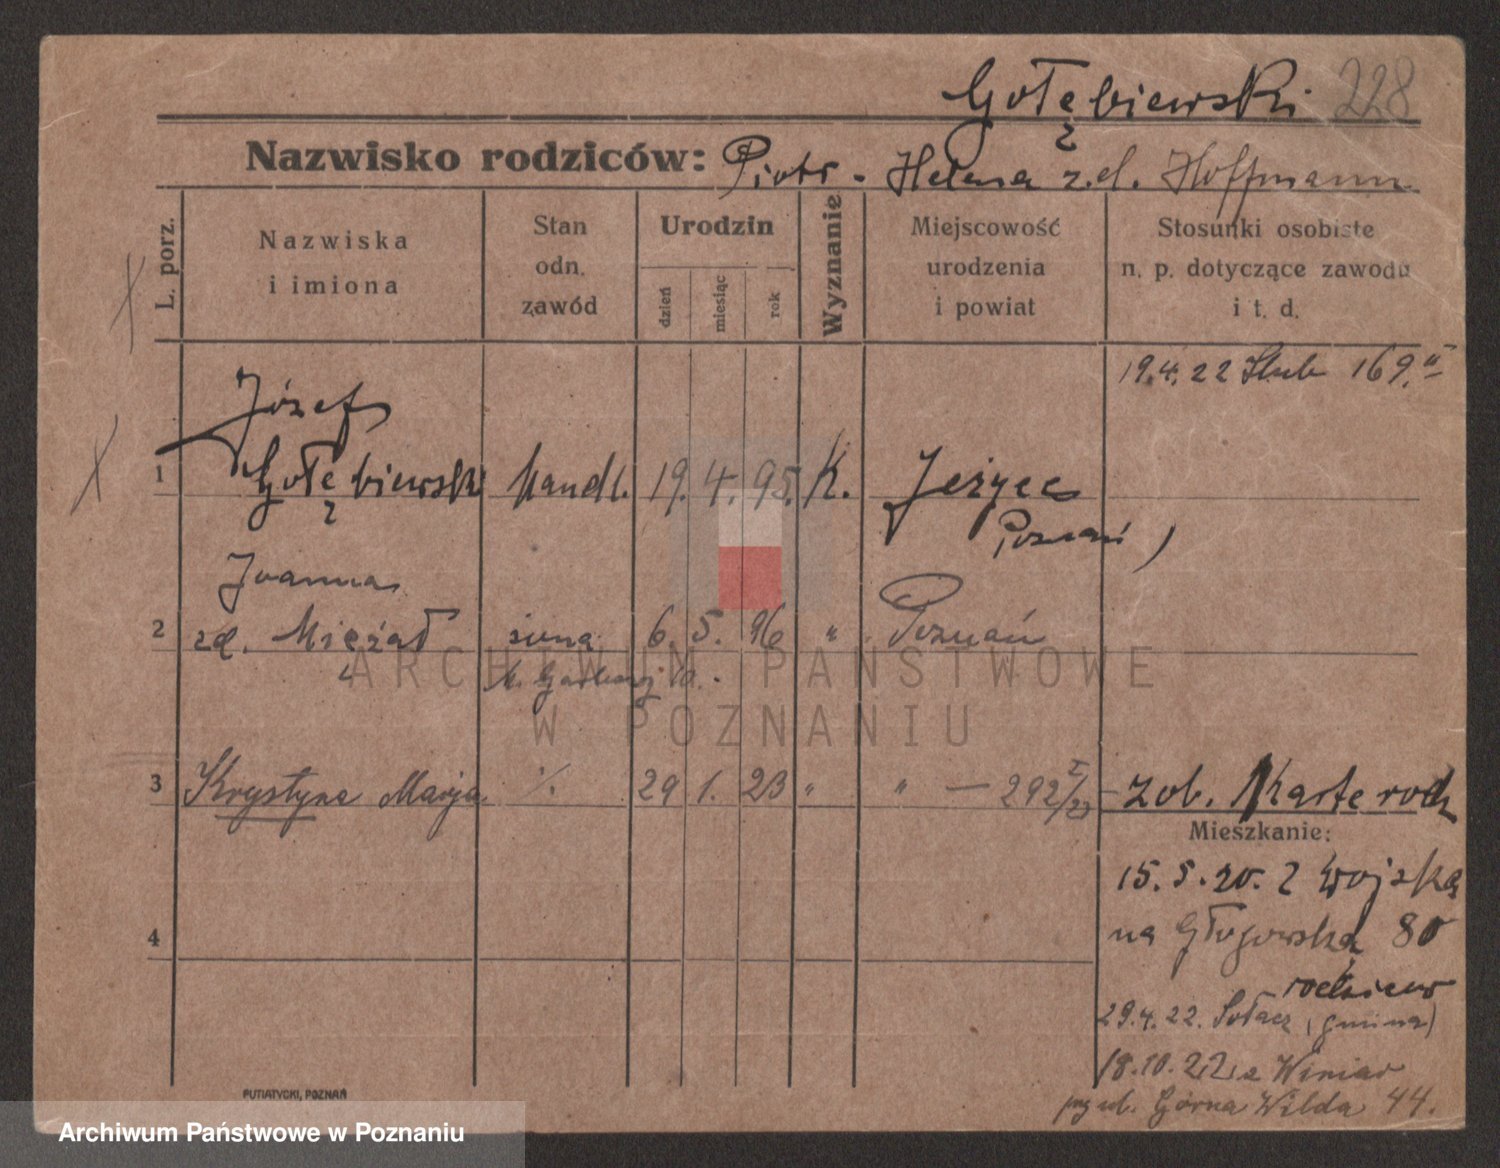 Gołębiewski 228
Nazwisko rodziców: Piotr - Helena z.d. Hoffmann
L. porz.
Nazwiska
i imiona
Stan
odn.
zawód
Urodzin
dzień
miesiąc
rok
Wyznanie
Miejscowość
urodzenia
i powiat
Stosunki osobiste
n. p. dotyczące zawodu
i t. d.
19.4.22 Ślub 169. II
Józef
1 Gołębiewski Handl. 19. 4. 95. K. Jeżyce
Poznań)
Joanna
2 zd. Mieżał żona 6. 5. 96 " Poznań
3 Krystyna Marja ./. 29 1. 23 " " — 292 I/23 — zob. Karte rodz
Mieszkanie:
15.5.20. z wojska
na Głogowska 80
4
rodziców
29.4.22. Sołacz (gmina)
18.10.22 z Winiar
przy ul. Górna Wilda 44.
PUTIATYCKI, POZNAŃ
ARCHIWUM PAŃSTWOWE
W POZNANIU
Archiwum Państwowe w Poznaniu